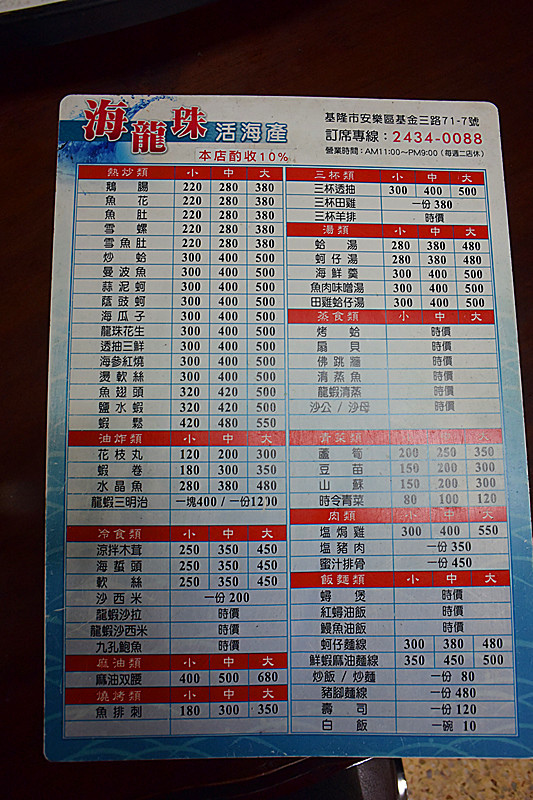 海龍珠 活海產
本店酌收10%
基隆市安樂區基金三路71-7號
訂席專線：2434-0088
營業時間：AM11:00~PM9:00（每週二店休）
熱炒類 小 中 大
鵝腸 220 280 380
魚花 220 280 380
魚肚 220 280 380
雪螺 220 280 380
雪魚肚 220 280 380
炒蛤 300 400 500
曼波魚 300 400 500
蒜泥蚵 300 400 500
蔭豉蚵 300 400 500
海瓜子 300 400 500
龍珠花生 300 400 500
透抽三鮮 300 400 500
海參紅燒 300 400 500
燙軟絲 300 400 500
魚翅頭 320 420 500
鹽水蝦 320 420 500
蝦鬆 420 480 550
油炸類 小 中 大
花枝丸 120 200 300
蝦卷 180 300 350
水晶魚 280 380 480
龍蝦三明治 一塊400 / 一份1200
冷食類 小 中 大
涼拌木茸 250 350 450
海蜇頭 250 350 450
軟絲 250 350 450
沙西米 一份 200
龍蝦沙拉 時價
龍蝦沙西米 時價
九孔鮑魚 時價
麻油類 小 中 大
麻油双腰 400 500 680
燒烤類 小 中 大
魚排刺 180 300 350
三杯類 小 中 大
三杯透抽 300 400 500
三杯田雞 一份 380
三杯羊排 時價
湯類 小 中 大
蛤湯 280 380 480
蚵仔湯 280 380 480
海鮮羹 300 400 500
魚肉味噌湯 300 400 500
田雞蛤仔湯 300 400 500
蒸食類 小 中 大
烤蛤 時價
扇貝 時價
佛跳牆 時價
清蒸魚 時價
龍蝦清蒸 時價
沙公 / 沙母 時價
青菜類 小 中 大
蘆筍 200 250 350
豆苗 150 200 300
山蘇 150 200 300
時令青菜 80 100 120
肉類 小 中 大
塩焗雞 300 400 550
塩豬肉 一份 350
蜜汁排骨 一份 450
飯麵類 小 中 大
蟳煲 時價
紅蟳油飯 時價
鰻魚油飯 時價
蚵仔麵線 300 380 480
鮮蝦麻油麵線 350 450 500
炒飯 / 炒麵 一份 80
豬腳麵線 一份 480
壽司 一份 120
白飯 一碗 10